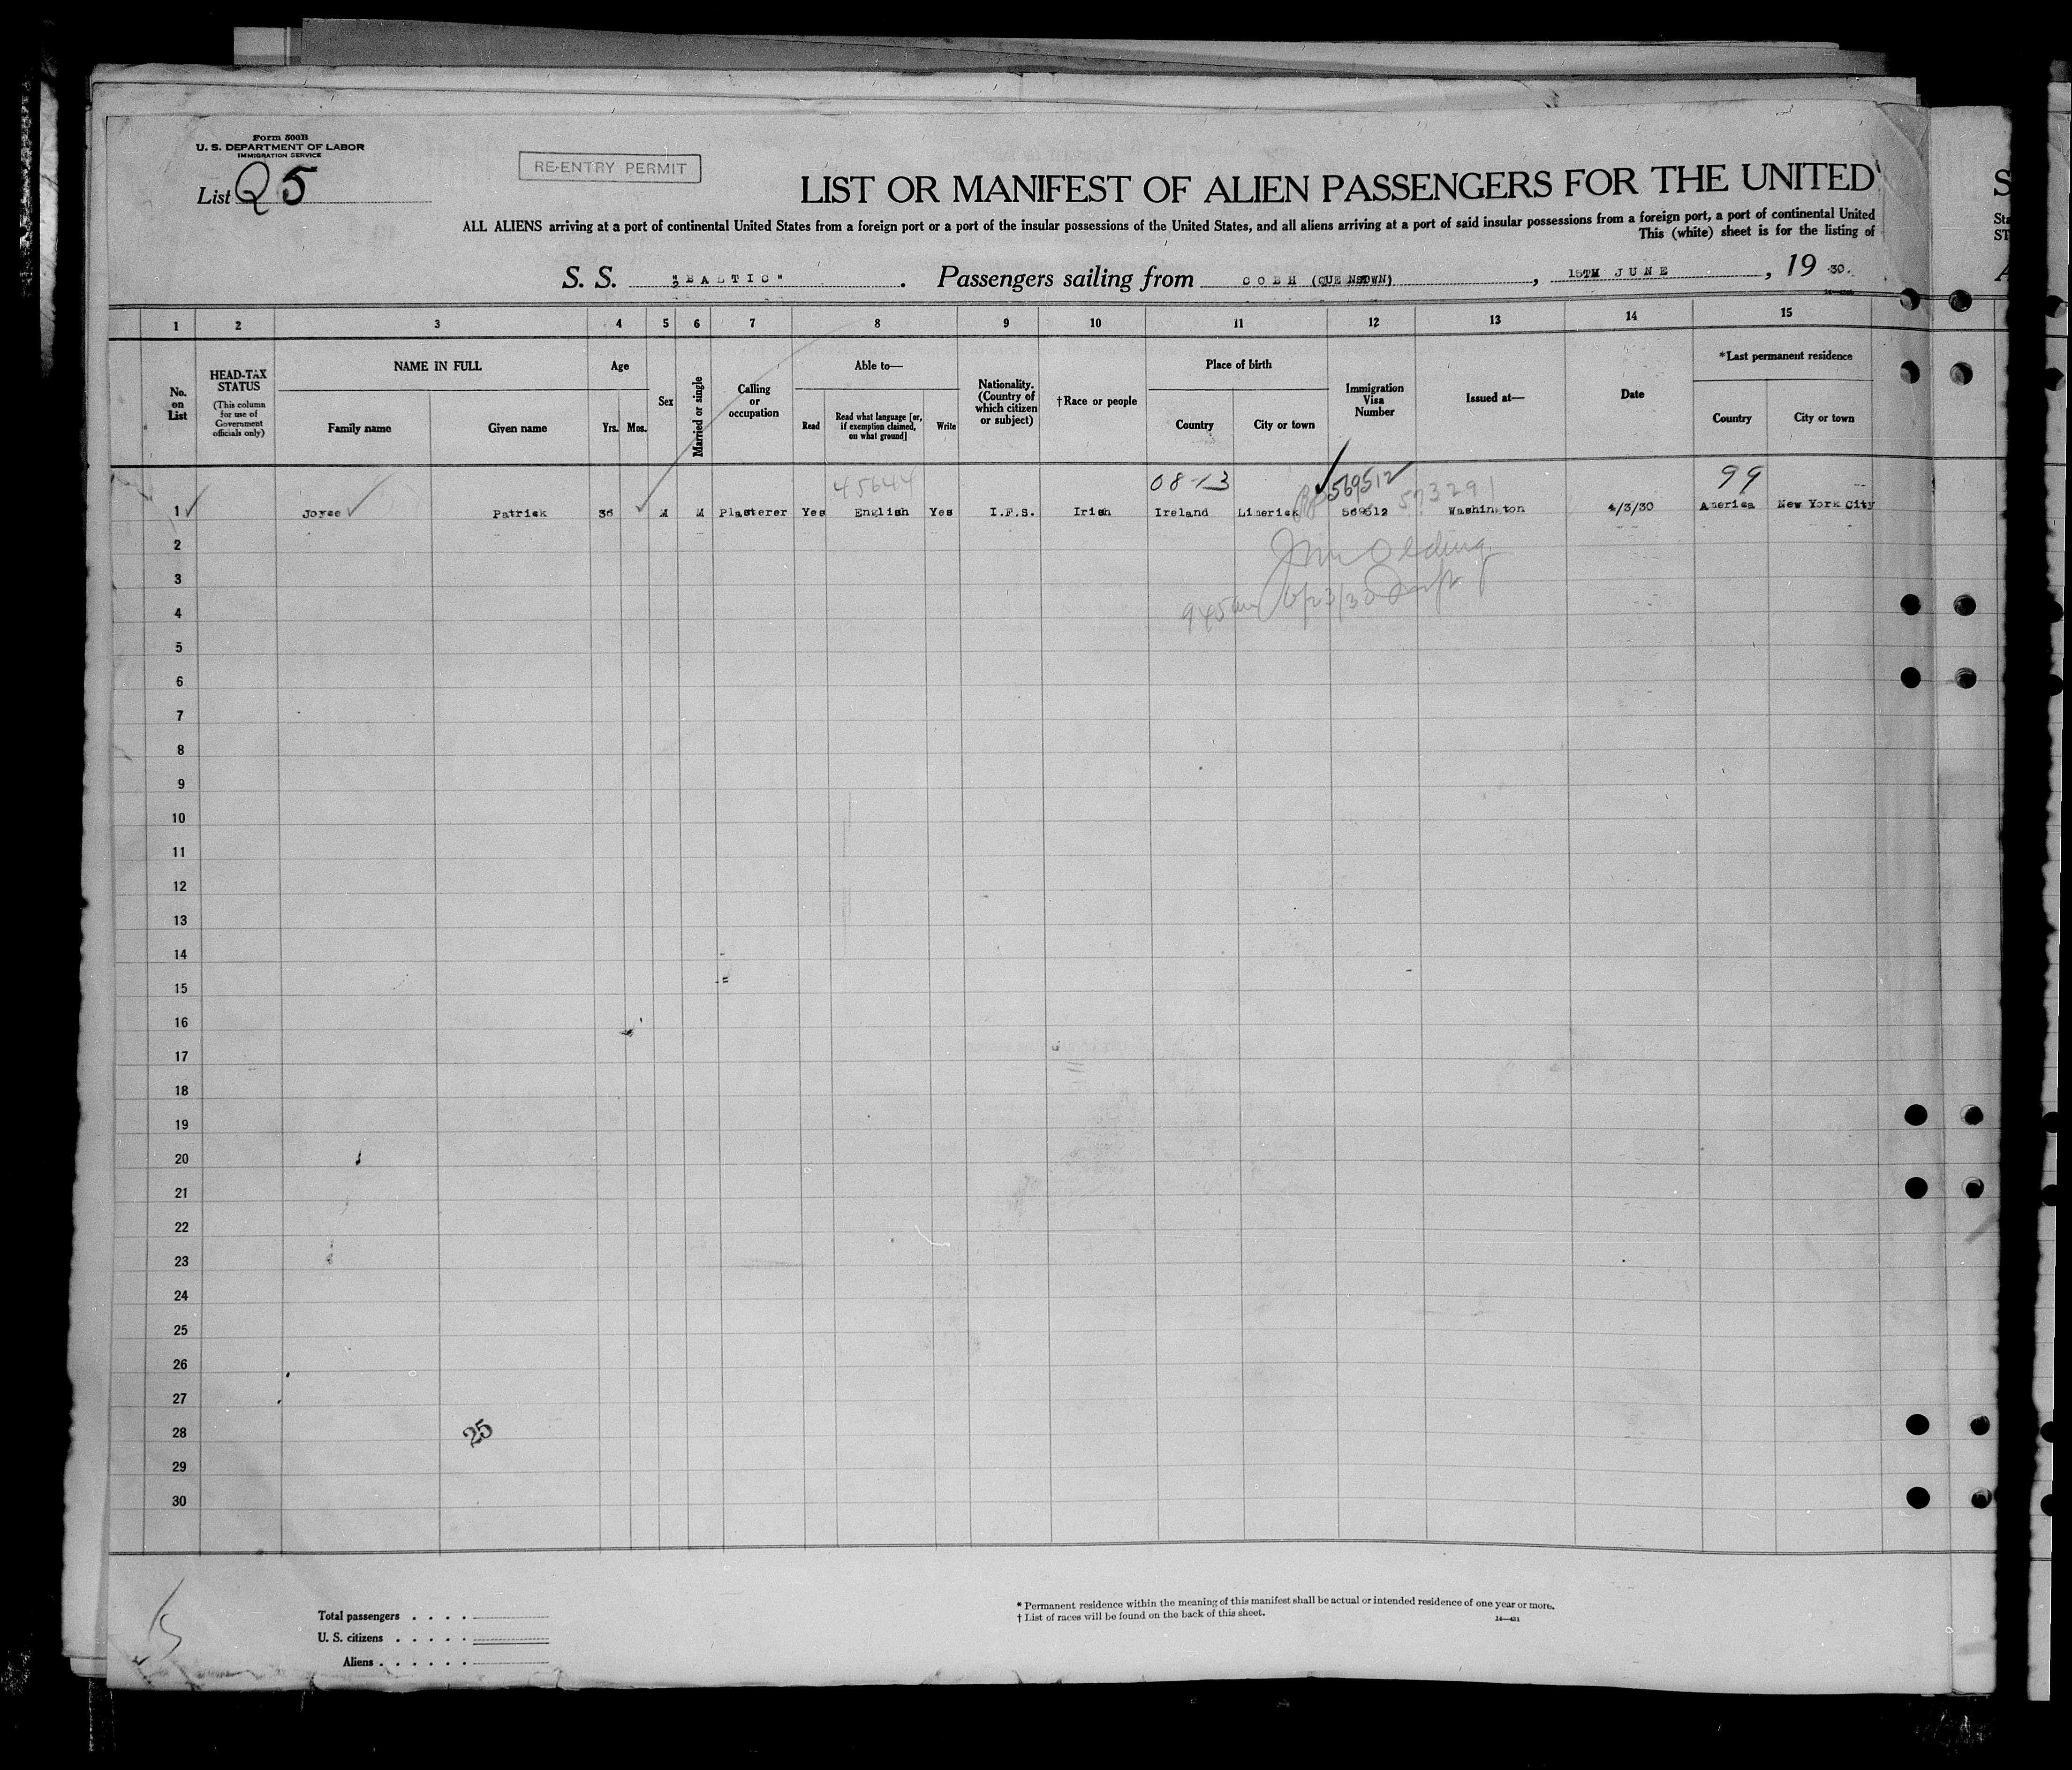 Form 500B
U. S. DEPARTMENT OF LABOR
IMMIGRATION SERVICE
List Q 5
RE-ENTRY PERMIT
LIST OR MANIFEST OF ALIEN PASSENGERS FOR THE UNITED
ALL ALIENS arriving at a port of continental United States from a foreign port or a port of the insular possessions of the United States, and all aliens arriving at a port of said insular possessions from a foreign port, a port of continental United
This (white) sheet is for the listing of
S. S. "BALTIC". Passengers sailing from COBH (QUEENSTOWN), 15TH JUNE, 19 30.
1 2 3 4 5 6 7 8 9 10 11 12 13 14 15
No. on List
HEAD-TAX STATUS
(This column for use of Government officials only)
NAME IN FULL
Family name Given name
Age
Yrs. Mos.
Sex
Married or single
Calling or occupation
Able to—
Read Read what language [or, if exemption claimed, on what ground] Write
Nationality. (Country of which citizen or subject)
†Race or people
Place of birth
Country City or town
Immigration Visa Number
Issued at—
Date
*Last permanent residence
Country City or town
45644 08-13 569512 573291 99
1 Joyce Patrick 36 M M Plasterer Yes English Yes I.F.S. Irish Ireland Limerick 569512 Washington 4/3/30 America New York City
2
3
4
945am 6/23/30
5
6
7
8
9
10
11
12
13
14
15
16
17
18
19
20
21
22
23
24
25
26
27
28
25
29
30
Total passengers . . . .
U. S. citizens . . . . .
Aliens . . . . . .
* Permanent residence within the meaning of this manifest shall be actual or intended residence of one year or more.
† List of races will be found on the back of this sheet.
14—431